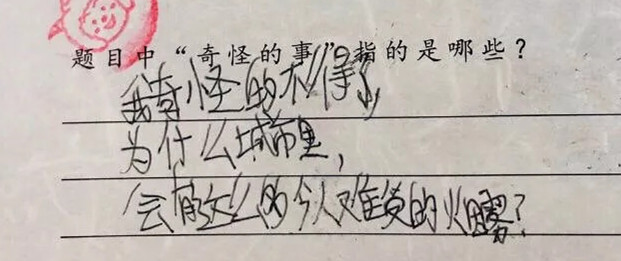 题目中“奇怪的事”指的是哪些？
我奇怪的不得了，
为什么城市里，
会有这么多令人难受的烟雾？